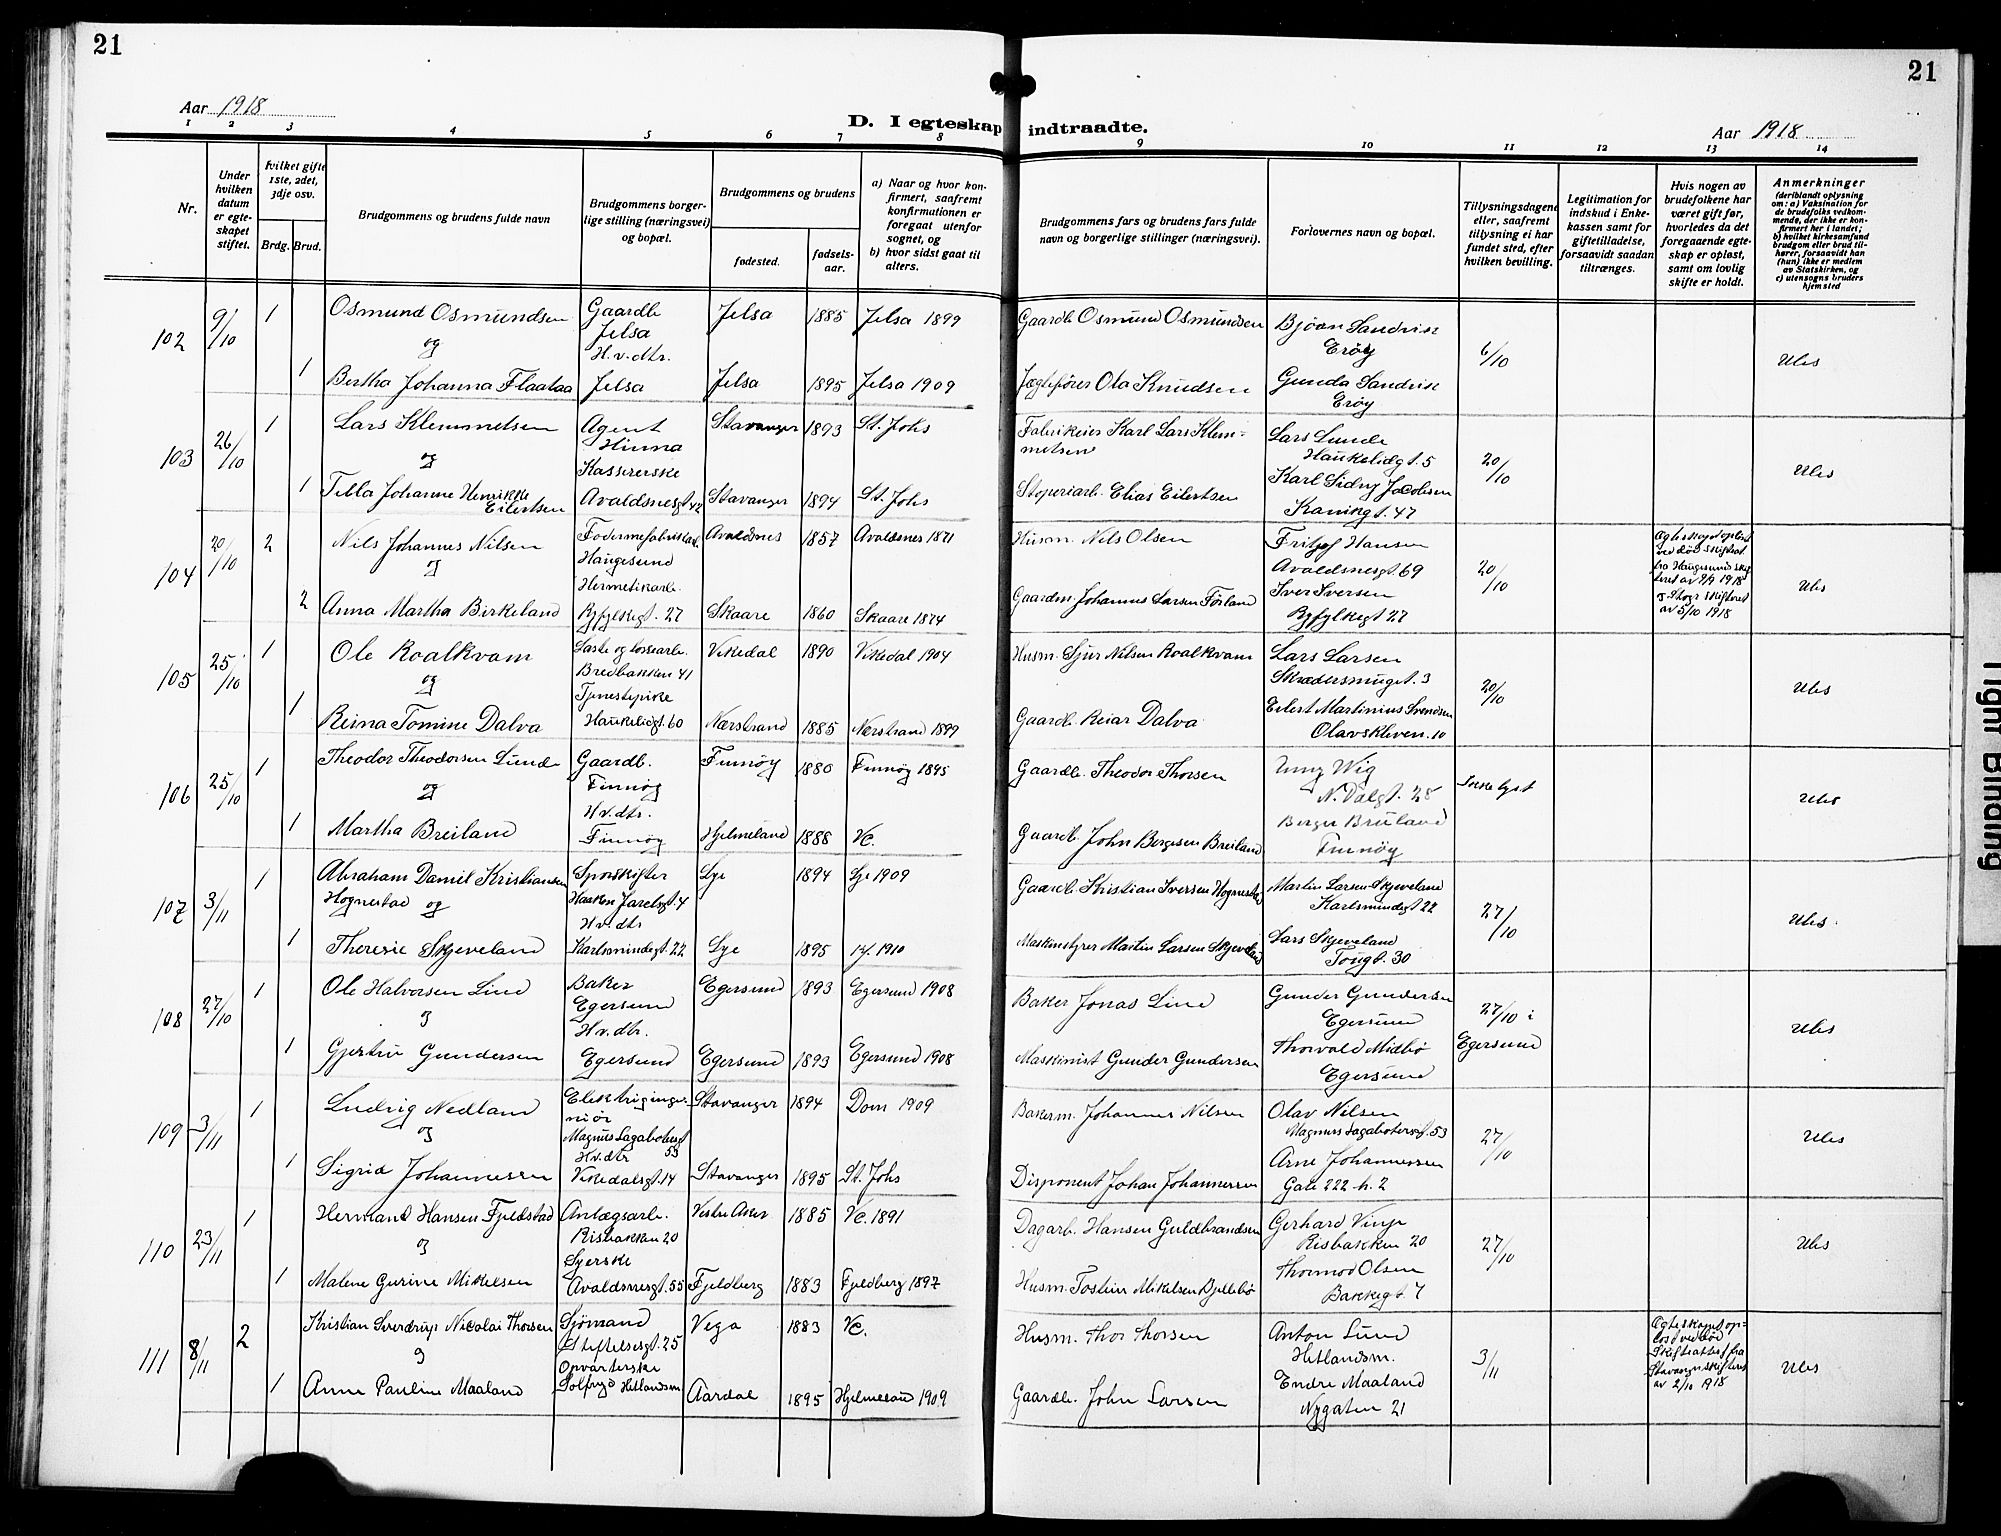 21
21
Aar 1918
D. I egteskap indtraadte.
Aar 1918
1 2 3 4 5 6 7 8 9 10 11 12 13 14
Nr.
Under hvilken datum er egteskapet stiftet.
Hvilket gifte 1ste, 2det, 3dje osv.
Brdg. Brud.
Brudgommens og brudens fulde navn
Brudgommens borgerlige stilling (næringsvei) og bopæl.
Brudgommens og brudens
fødested.
fødselsaar.
a) Naar og hvor konfirmert, saafremt konfirmationen er foregaat utenfor sognet, og
b) hvor sidst gaat til alters.
Brudgommens fars og brudens fars fulde navn og borgerlige stillinger (næringsvei).
Forlovernes navn og bopæl.
Tillysningsdagene eller, saafremt tillysning ei har fundet sted, efter hvilken bevilling.
Legitimation for indskud i Enkekassen samt for giftetilladelse, forsaavidt saadan tiltrænges.
Hvis nogen av brudefolkene har været gift før, hvorledes da det foregaaende egteskap er opløst, samt om lovlig skifte er holdt.
Anmerkninger
(deriblandt oplysning om: a) Vaksination for de brudefolks vedkommende, der ikke er konfirmert her i landet; b) hvilket kirkesamfund brudgom eller brud tilhører, forsaavidt han (hun) ikke er medlem av Statskirken, og c) utensogns bruders hjemsted
102 9/10 1 Osmund Osmundsen Gaardb. Jelsa Jelsa 1885 Jelsa 1899 Gaardb. Osmund Osmundsen Bjöan Sandvik Eröy 6/10 Ubs
og
1 Bertha Johanna Flaataa H.v.dtr. Jelsa Jelsa 1895 Jelsa 1909 Jægtefører Ola Knudsen Gunda Sandvik Eröy
103 26/10 1 Lars Klemmetsen Agent Hinna Stavanger 1893 St. Johs Fabrikeier Karl Lars Klemmetsen Lars Lunde Haukeligt. 5 20/10 Ubs
og
1 Tilla Johanne Henrikke Eilertsen Kassererske Avaldsnesgt 42 Stavanger 1894 St. Johs Støperiarb. Elias Eilertsen Karl Sidny Jacobsen Kaningt. 47
104 20/10 2 Nils Johannes Nilsen Haugesund Avaldsnes 1857 Avaldsnes 1871 Husm. Nils Olsen Fritjof Hansen Avaldsnesgt. 69 20/10 Ubs
og
2 Anna Martha Birkeland Hermetikarb. Ryfylkegt. 27 Skaare 1860 Skaare 1874 Gaardm. Johannes Larsen Førland Iver Iversen Ryfylkegt 27
Egteskapet opløst ved død Skifteat fra Haugesund skifteret av 9/9 1918 og Stvgr skifteret av 5/10 1918
105 25/10 1 Ole Roalkvam Laste og lossearb. Bredbakken 41 Vikedal 1890 Vikedal 1904 Husm. Sjur Nilsen Roalkvam Lars Larsen Skrædersmuget. 3 20/10 Ubs
og
1 Reina Tomine Dalva Tjenestepike Haukeligt. 60 Nærstrand 1885 Nærstrand 1899 Gaardb. Reiar Dalva Eilert Martinius Svendsen Olavskleven. 10
106 25/10 1 Theodor Theodorsen Lunde Gaardb. Finnöy Finnöy 1880 Finnöy 1895 Gaardb. Theodor Thorsen Unny Wig N. Dalgt. 25 Ikke lyst Ubs
og
1 Martha Breiland H.v.dtr. Finnöy Hjelmeland 1888 Vc. Gaardb. John Bergesen Breiland Berger Breiland Finnöy
107 3/11 1 Abraham Daniel Kristiansen Hognestad og Sporskifter Haakon Jarelsgt. 4 Lye 1894 Lye 1909 Gaardb. Kristian Iversen Hognestad Martin Larsen Skjeveland Karlsmindegt 22 27/10 Ubs
1 Theresie Skjeveland H.v.dtr Karlsmindegt. 22 Lye 1895 1910 Maskinstyrer Martin Larsen Skjeveland Lars Skjeveland Tongt. 30
108 27/10 1 Ole Halvorsen Lind Baker Egersund Egersund 1893 Egersund 1908 Baker Jonas Lind Gunder Gundersen Egersund 27/10 i Egersund Ubs
og
1 Gjertru Gundersen H.v.dtr. Egersund Egersund 1893 Egersund 1908 Maskinist Gunder Gundersen Thorvald Midbö Egersund
109 3/11 1 Ludvig Nedland Elektrigingeniör Magnus Lagabötersgt 53 Stavanger 1894 Dom 1909 Bakerm. Johannes Nilsen Olav Nilsen Magnus Lagabötersgt. 53 27/10 Ubs
og
1 Sigrid Johannessen H.v.dtr Vikedalsgt. 14 Stavanger 1895 St. Johs Disponent Johan Johannessen Arne Johannessen Gate 222 h. 2
110 23/11 1 Hermand Hansen Fjeldstad Anlægsarb. Risbakken 20 Vestre Aker 1885 Vc. 1891 Dagarb. Hansen Guldbrandsen Gerhard Vinje Risbakken 20 27/10 Ubs
og
1 Malene Gurine Mikelsen Syerske Avaldsnesgt. 55 Fjeldberg 1883 Fjeldberg 1897 Husm. Tostein Mikelsen Bjellebö Thormod Olsen Bakkegt. 7
111 8/11 2 Kristian Sverdrup Nicolai Thorsen Sjömand Stiftelsesgt. 25 Vega 1883 Vc. Husm. Thor Thorsen Anton Lund Hetlandsm. 3/11 Ubs
og
1 Anne Pauline Maaland Opvarterske Solfryd Hetlandsm Aardal 1895 Hjelmeland 1909 Gaardb. John Larsen Endre Maaland Nygaten 21
Egteskapet opløst ved død Skifteattest fra Stavanger skifteret av 2/10 1918
Tight Binding